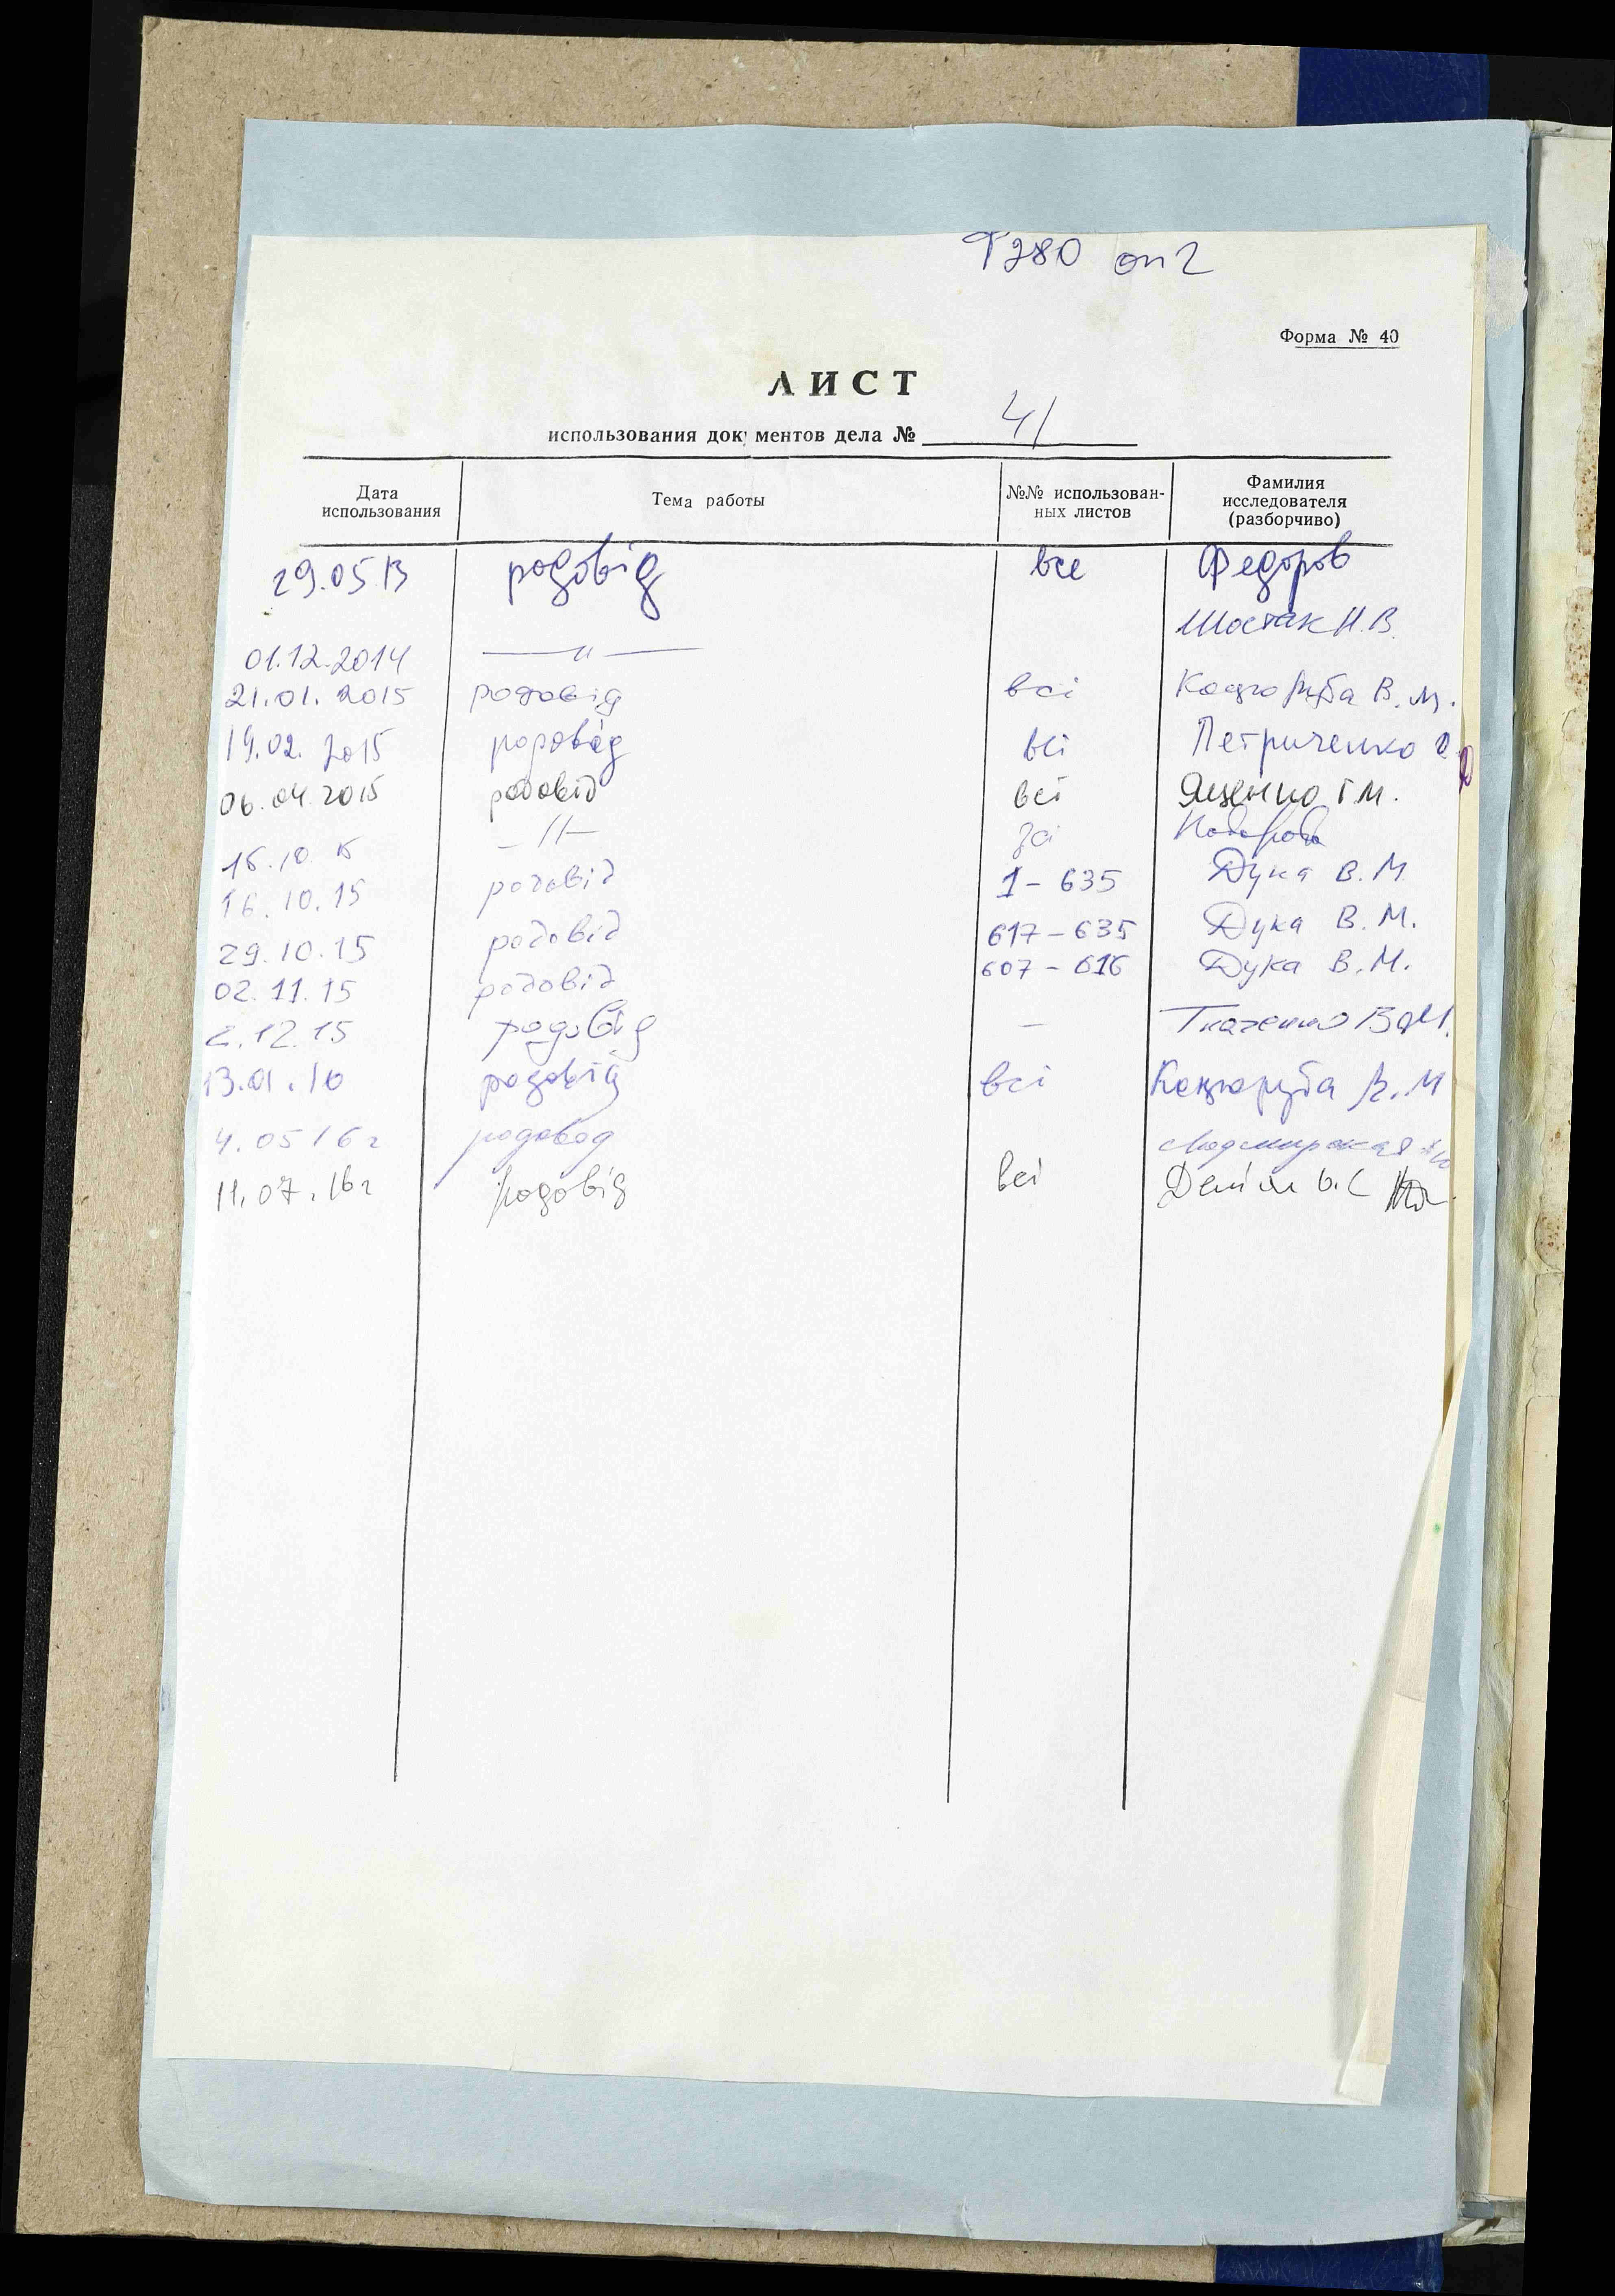 Ф280 оп 2
Форма № 40
ЛИСТ
использования документов дела № 41
Дата использования Тема работы №№ использован-ных листов Фамилия исследователя (разборчиво)
29.05.13 родовід все Федоров
01.12.2014 —— " —— Шостак Н.В.
21.01.2015 родовід всі Коцюруба В.М.
19.02.2015 родовід всі Петриченко О.
06.04.2015 родовід всі Яценко Г.М.
15.10.15 – // –
16.10.15 родовід 1 – 635 Дука В.М.
29.10.15 родовід 617 – 635 Дука В.М.
02.11.15 родовід 607 – 616 Дука В.М.
2.12.15 родовід — Ткаченко
13.01.16 родовід всі Коцюруба В.М
4.05 16 г родовод
11.07.16 г родовід всі